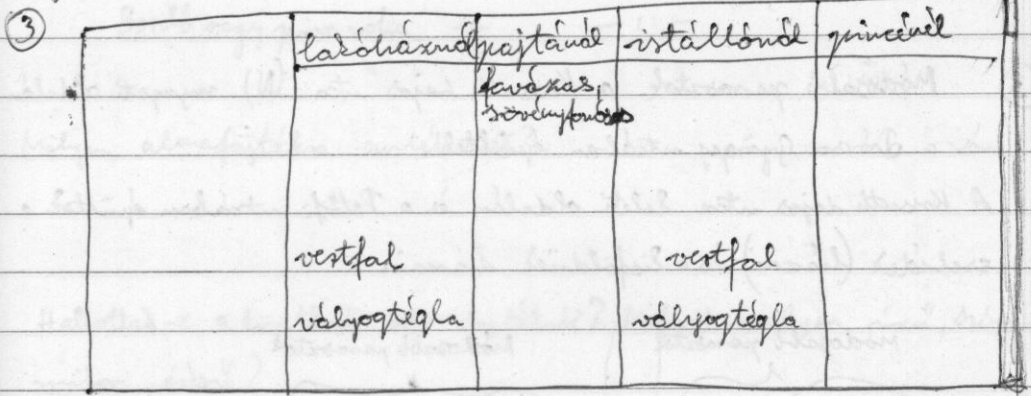 3
lakóháznál pajtánál istállónál pincénél
favázas,
sövényfonásos
vertfal vertfal
vályogtégla vályogtégla